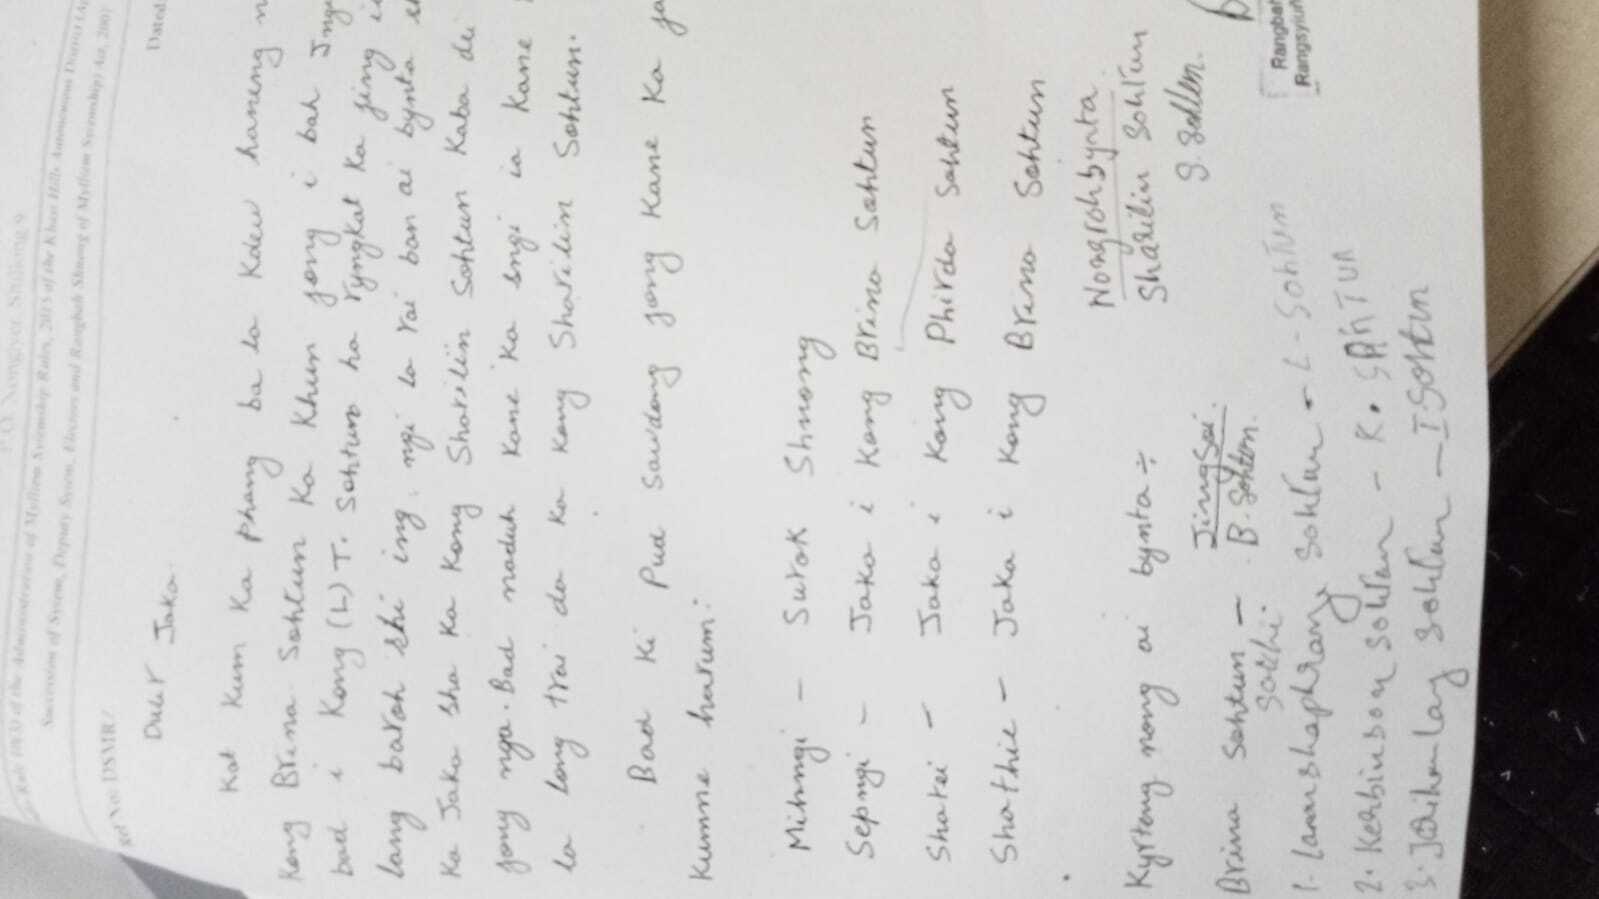 P.O. Nongmynsong Shillong-9
of the Administration of Mylliem Syiemship Rules, 2015 of the Khasi Hills Autonomous District (Ap
Succession of Syiem, Deputy Syiem, Electors and Rangbah Shnong of Mylliem Syiemship Act, 2007
Ref No. DSMR/
Dated.
Dulir Jaka.
Kat kum ka phang ba la kdew haneng n
Kong Brina Sohtun ka khun jong i bah
bad i Kong (L) T. Sohtun ha ryngkat ka jing
lang baroh shi ing. ngi la rai ban ai bynta
Ka Jaka sha ka Kong Sharilin Sohtun kaba dei
jong nga. Bad naduh kane ka sngi ia kane
la long trai da ka kong Sharilin Sohtun.
Bad ki pud sawdong jong kane ka ja
kumne harum:
Mihngi - Surok Shnong
Sepngi - Jaka i Kong Brina Sohtun
Shatei - Jaka i Kong Phirda Sohtun
Shathie - Jaka i Kong Brina Sohtun
Kyrteng nong ai bynta ÷
Nongïohbynta
Sharilin Sohtun
S. Sohtun.
Jingsoi.
Brina Sohtun - B. Sohtun.
Sakhi.
1. Lamshaphrang Sohtun - L - Sohtun
2. Kerbinbon Sohtun - K. SOHTUN
3. Sohtun - I Sohtun
Rangbah
Rangsyiem